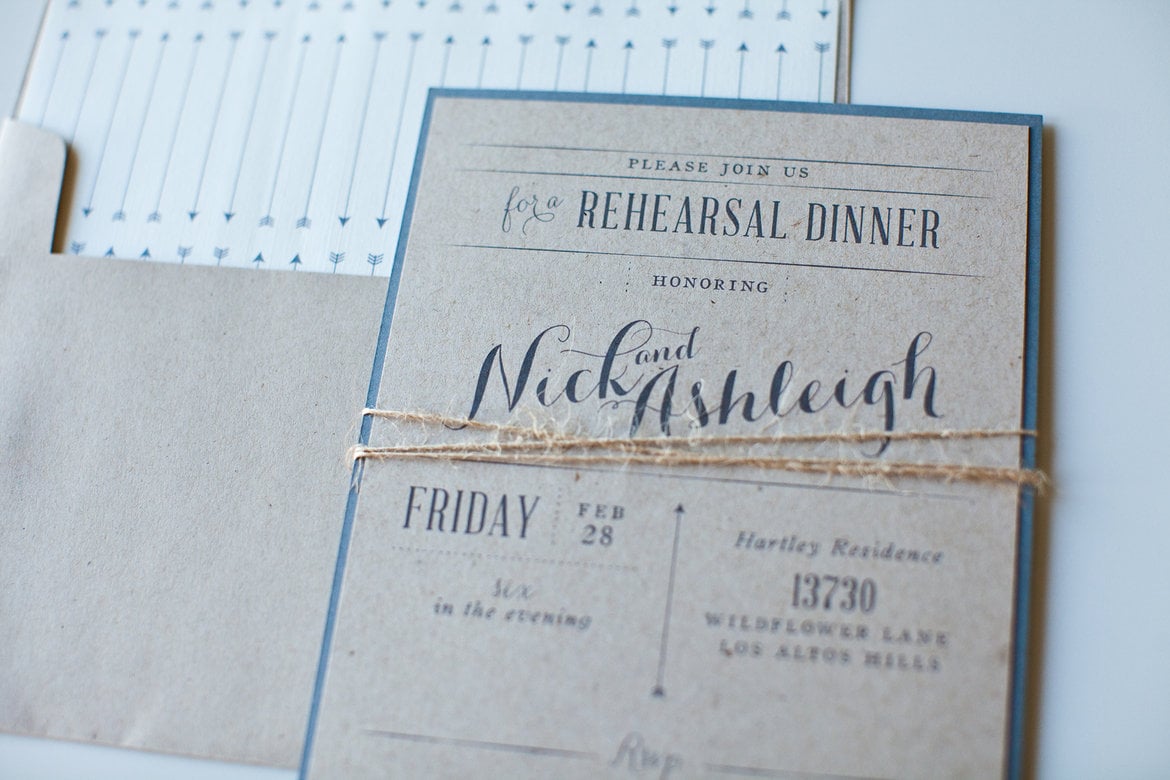 PLEASE JOIN US
for a REHEARSAL DINNER
HONORING
Nick and Ashleigh
FRIDAY
FEB
28
six
in the evening
Hartley Residence
13730
WILDFLOWER LANE
LOS ALTOS HILLS
Rsvp